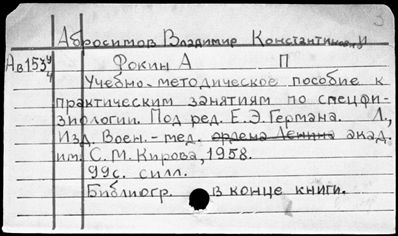 3
Абросимов Владимир Константинович и
Ав153 4/4 Фокин А П
Учебно-методическое пособие к
практическим занятиям по спецфи-
зиологии. Под ред. Е.Э. Германа. Л.,
Изд. Воен.-мед. ордена Ленина акад.
им. С.М. Кирова, 1958.
99с. с илл.
Библиогр. в конце книги.